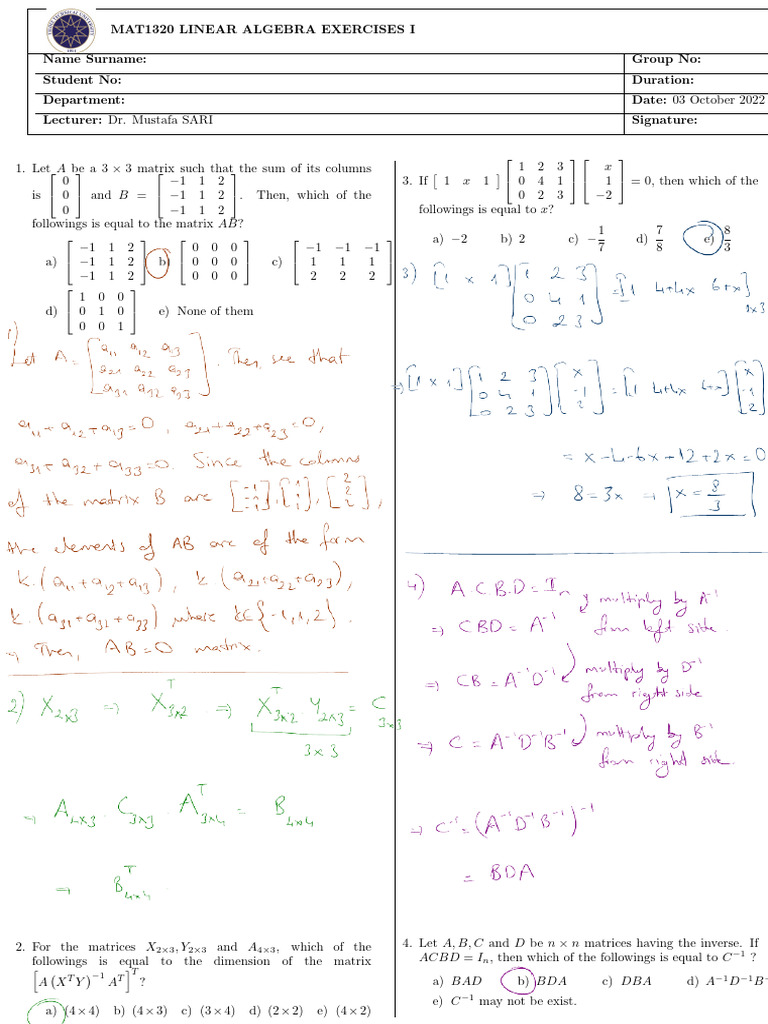 MAT1320 LINEAR ALGEBRA EXERCISES I
Name Surname: Group No:
Student No: Duration:
Department: Date: 03 October 2022
Lecturer: Dr. Mustafa SARI Signature:
1. Let A be a 3 × 3 matrix such that the sum of its columns
is [0 0 0] and B = [−1 1 2; −1 1 2; −1 1 2]. Then, which of the
followings is equal to the matrix AB?
a) [−1 1 2; −1 1 2; −1 1 2] b) [0 0 0; 0 0 0; 0 0 0] c) [−1 −1 −1; 1 1 1; 2 2 2]
d) [1 0 0; 0 1 0; 0 0 1] e) None of them
1)
Let A = [a11 a12 a13; a21 a22 a23; a31 a32 a33]. Then, see that
a11+a12+a13=0, a21+a22+a23=0,
a31+a32+a33=0. Since the columns
of the matrix B are [-1 -1 -1], [1 1 1], [2 2 2],
the elements of AB are of the form
k.(a11+a12+a13), k(a21+a22+a23),
k.(a31+a32+a33) where k∈{-1,1,2}.
⇒ Then, AB=0 matrix.
2) X2x3 ⇒ X^T3x2 ⇒ X^T3x2 . Y2x3 = C3x3
3x3
⇒ A4x3 . C3x3 . A^T3x4 = B4x4
⇒ B^T4x4
2. For the matrices X2×3, Y2×3 and A4×3, which of the
followings is equal to the dimension of the matrix
[A (X^T Y)^−1 A^T]^T?
a) (4×4) b) (4×3) c) (3×4) d) (2×2) e) (4×2)
3. If [1 x 1] [1 2 3; 0 4 1; 0 2 3] [x; 1; −2] = 0, then which of the
followings is equal to x?
a) −2 b) 2 c) −1/7 d) 7/8 e) 8/3
3) [1 x 1] [1 2 3; 0 4 1; 0 2 3] = [1 4+4x 6+x]1x3
⇒ [1 x 1] [1 2 3; 0 4 1; 0 2 3] [x; -1; 2] = [1 4+4x 6+x] [x; -1; 2]
= x-4-6x+12+2x=0
⇒ 8=3x ⇒ x=8/3
4) A.C.B.D = In
multiply by A^-1
⇒ CBD = A^-1 from left side.
multiply by D^-1
⇒ CB = A^-1D^-1 from right side
multiply by B^-1
⇒ C = A^-1D^-1B^-1 from right side.
⇒ C^-1 = (A^-1D^-1B^-1)^-1
= BDA
4. Let A, B, C and D be n × n matrices having the inverse. If
ACBD = In, then which of the followings is equal to C^−1 ?
a) BAD b) BDA c) DBA d) A^−1D^−1B^−
e) C^−1 may not be exist.